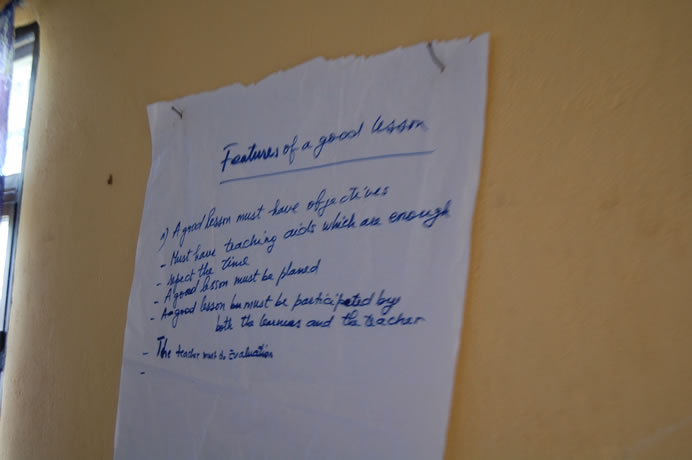 Features of a good lesson
1) A good lesson must have objectives
- Must have teaching aids which are enough
- repect the time
- A good lesson must be planed
- A good lesson must be participated by
both the learners and the teacher
- The teacher must do Evaluation
-